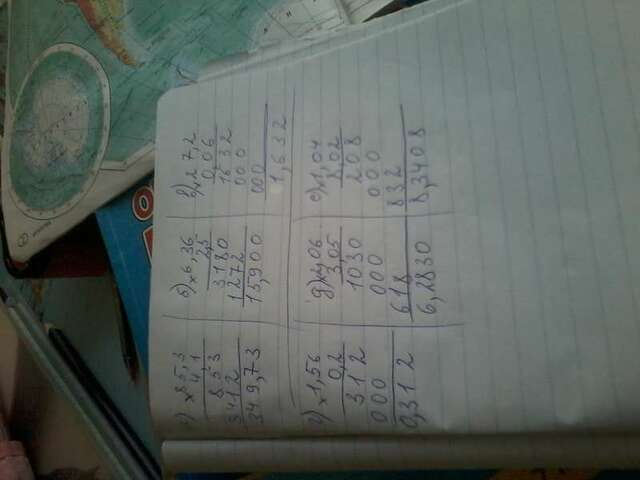 а) × 85,3
4,1
853
3412
349,73
б) × 6,36
2,5
3180
1272
15,900
в) × 27,2
0,06
1632
000
000
1,632
г) × 1,56
0,2
312
000
0,312
д) × 2,06
3,05
1030
000
618
6,2830
е) × 1,04
8,02
208
000
832
8,3408